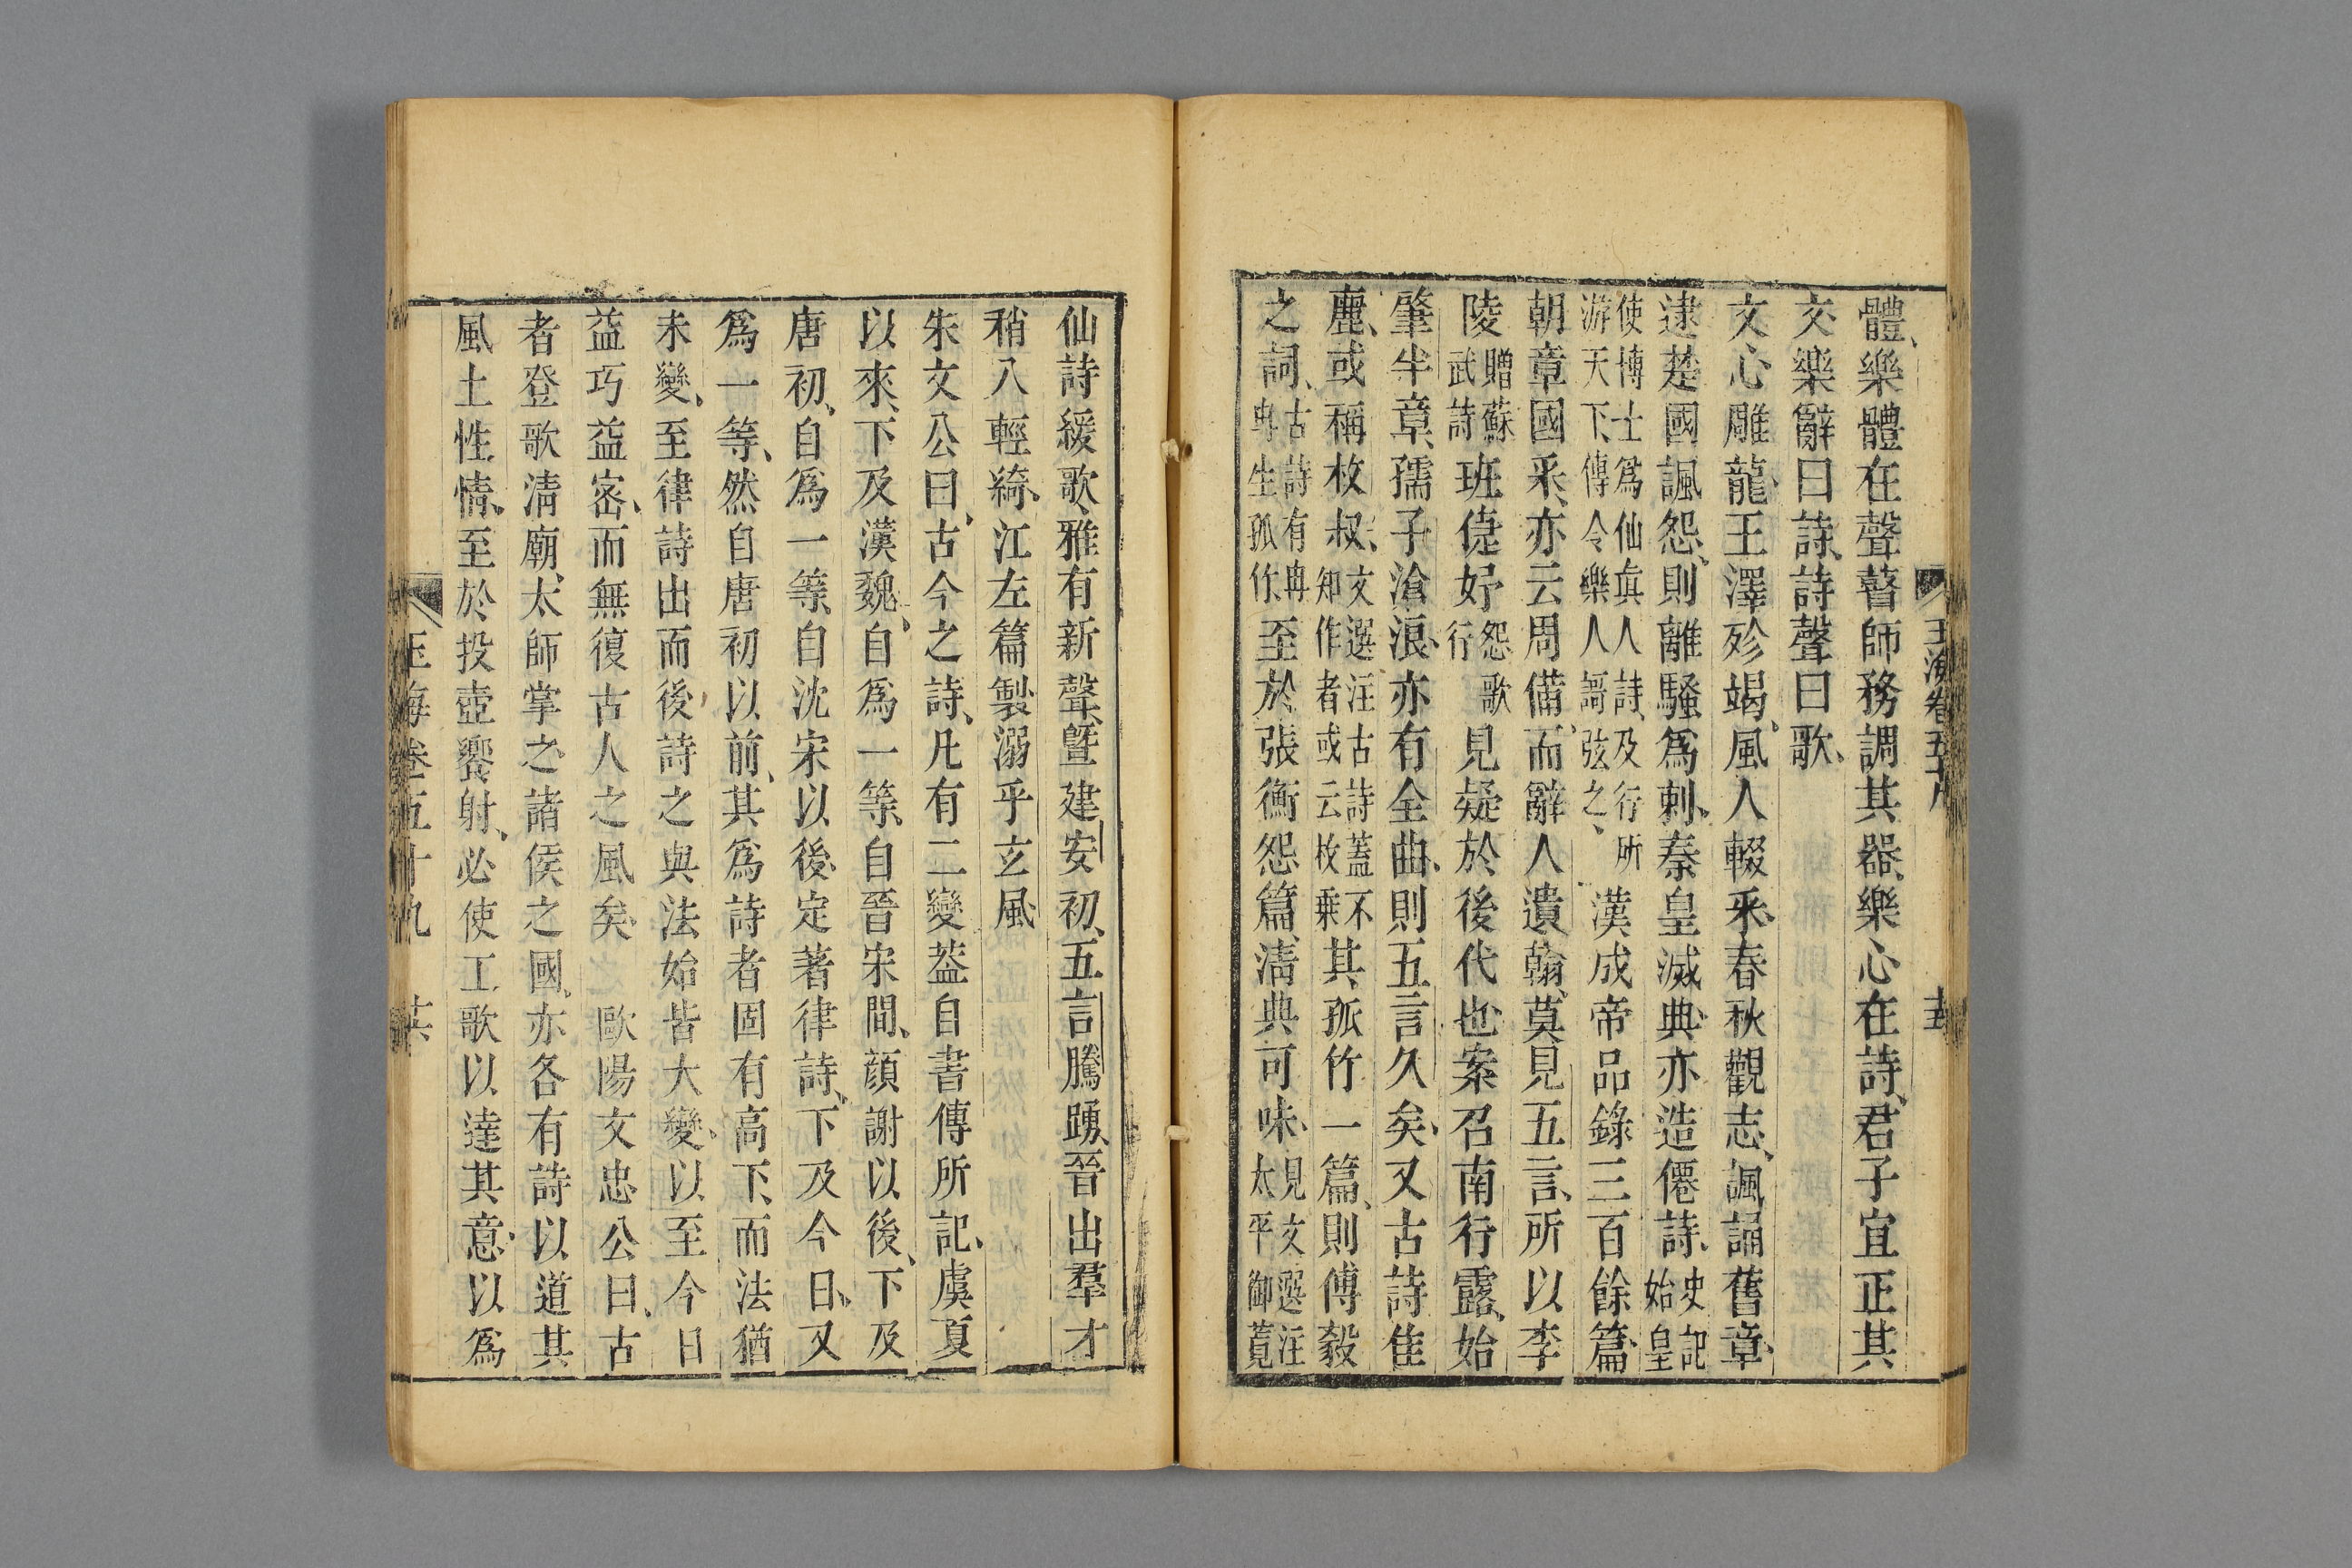 體、樂體在聲、瞽師務調其器、樂心在詩、君子宜正其
文、樂辭曰詩、詩聲曰歌、
文心雕龍、王澤殄竭、風人輟采、春秋觀志、諷誦舊章、
逮楚國諷怨、則離騷爲刺、秦皇滅典、亦造僊詩、史記始皇
使博士爲仙眞人詩、及行所游天下、傳令樂人謌弦之、漢成帝品錄三百餘篇、
朝章國采、亦云周備、而辭人遺翰、莫見五言、所以李
陵贈蘇武詩班倢妤怨歌行見疑於後代也、案召南行露、始
肇半章、孺子滄浪、亦有全曲、則五言久矣、又古詩佳
麗、或稱枚叔、文選注古詩蓋不知作者或云枚乗其孤竹一篇、則傅毅
之詞、古詩有冉冉生孤竹、至於張衡怨篇、淸典可味、見文選注太平御覽
仙詩緩歌、雅有新聲、曁建安初、五言騰踴、晉出羣才
稍入輕綺、江左篇製溺乎玄風、
朱文公曰、古今之詩、凡有二變葢自書傳所記、虞夏
以來、下及漢魏、自爲一等、自晉宋間、顔謝以後、下及
唐初、自爲一等、自沈宋以後、定著律詩、下及今日、又
爲一等、然自唐初以前、其爲詩者固有高下、而法猶
未變、至律詩出而後詩之與法始皆大變、以至今日
益巧益密、而無復古人之風矣、歐陽文忠公曰、古
者登歌淸廟、太師掌之諸侯之國、亦各有詩以道其
風土性情、至於投壺饗射、必使工歌以達其意、以爲
玉海卷五十九 廿六